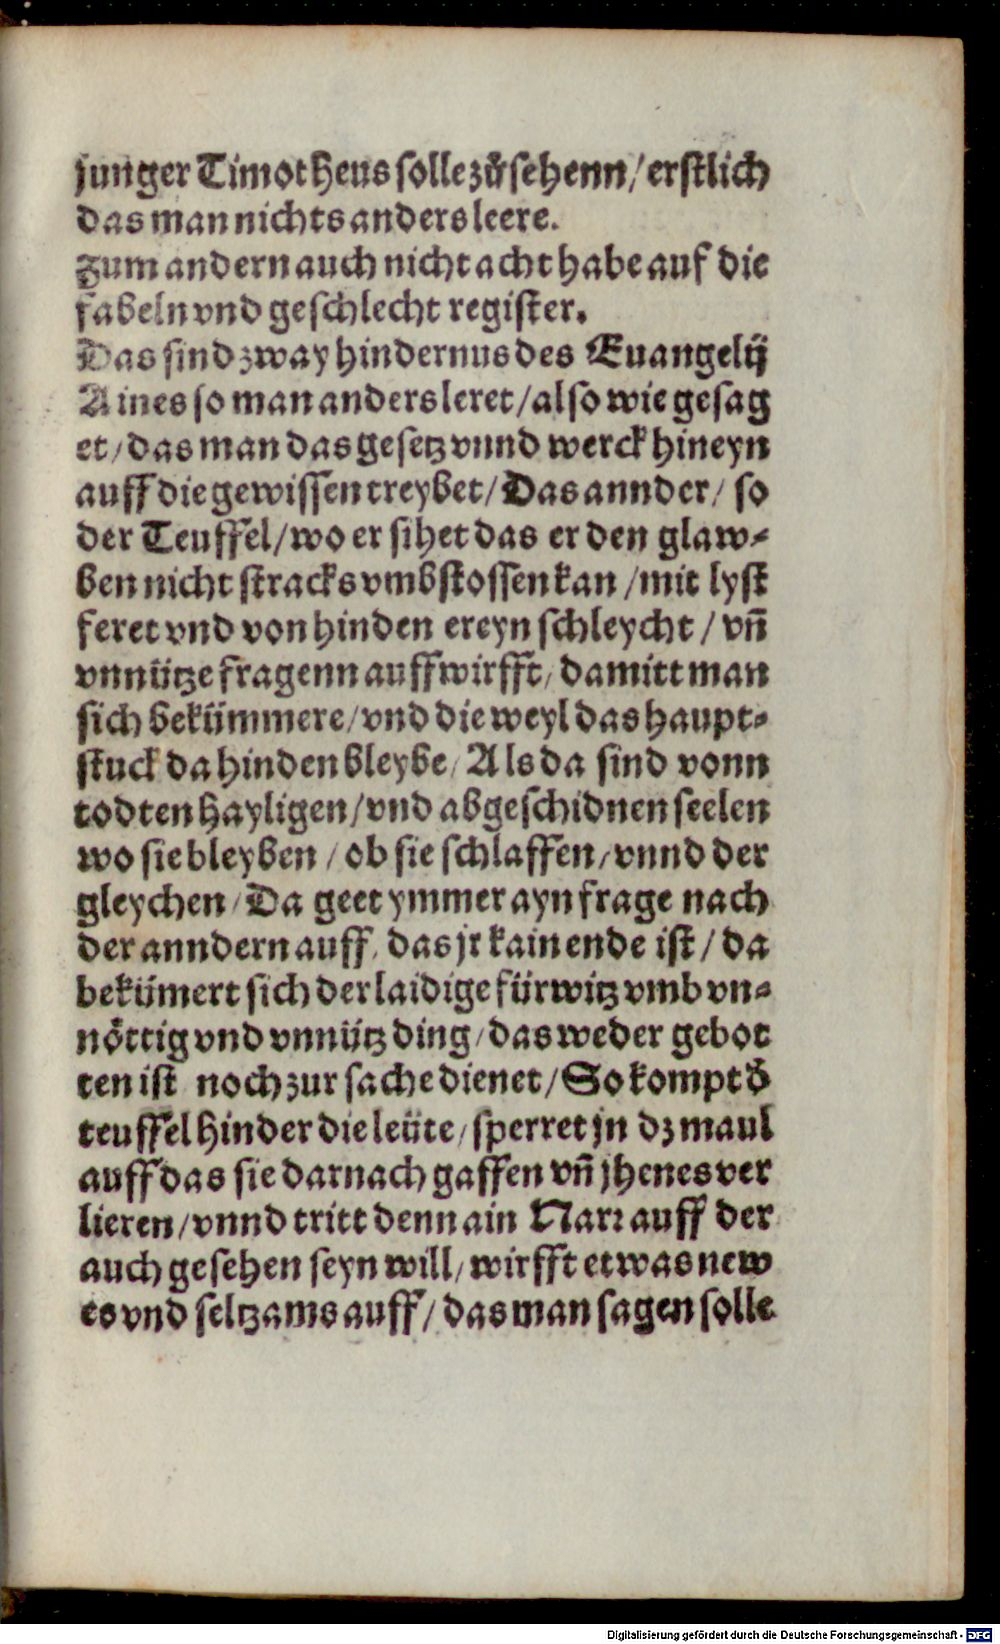 junger Timotheus solle zůsehenn/ erstlich
das man nichts anders leere.
Zum andern auch nicht acht habe auf die
fabeln vnd geschlecht register.
Das sind zway hindernus des Euangelij
Aines so man anders leret/ also wie gesag
et/ das man das gesetz vnnd werck hineyn
auff die gewissen treybet/ Das annder/ so
der Teuffel/ wo er sihet das er den glaw⸗
ben nicht stracks vmbstossen kan/ mit lyst
feret vnd von hinden ereyn schleycht/ vñ
vnnütze fragenn auffwirfft/ damitt man
sich bekümmere/ vnd die weyl das haupt⸗
stuck dahinden bleybe/ Als da sind vonn
todten hayligen/ vnd abgeschidnen seelen
wo sie bleyben/ ob sie schlaffen/ vnnd der
gleychen/ Da geet ymmer ayn frage nach
der anndern auff/ das jr kain ende ist/ da
bekümert sich der laidige fürwitz vmb vn⸗
nöttig vnd vnnütz ding/ das weder gebot
ten ist noch zur sache dienet/ So kompt d̕
teuffel hinder die leüte/ sperret jn dz maul
auff das sie darnach gaffen vñ jhenes ver
lieren/ vnnd tritt denn ain Narr auff der
auch gesehen seyn will/ wirfft etwas new
es vnd seltzams auff/ das man sagen solle
Digitalisierung gefördert durch die Deutsche Forschungsgemeinschaft - DFG